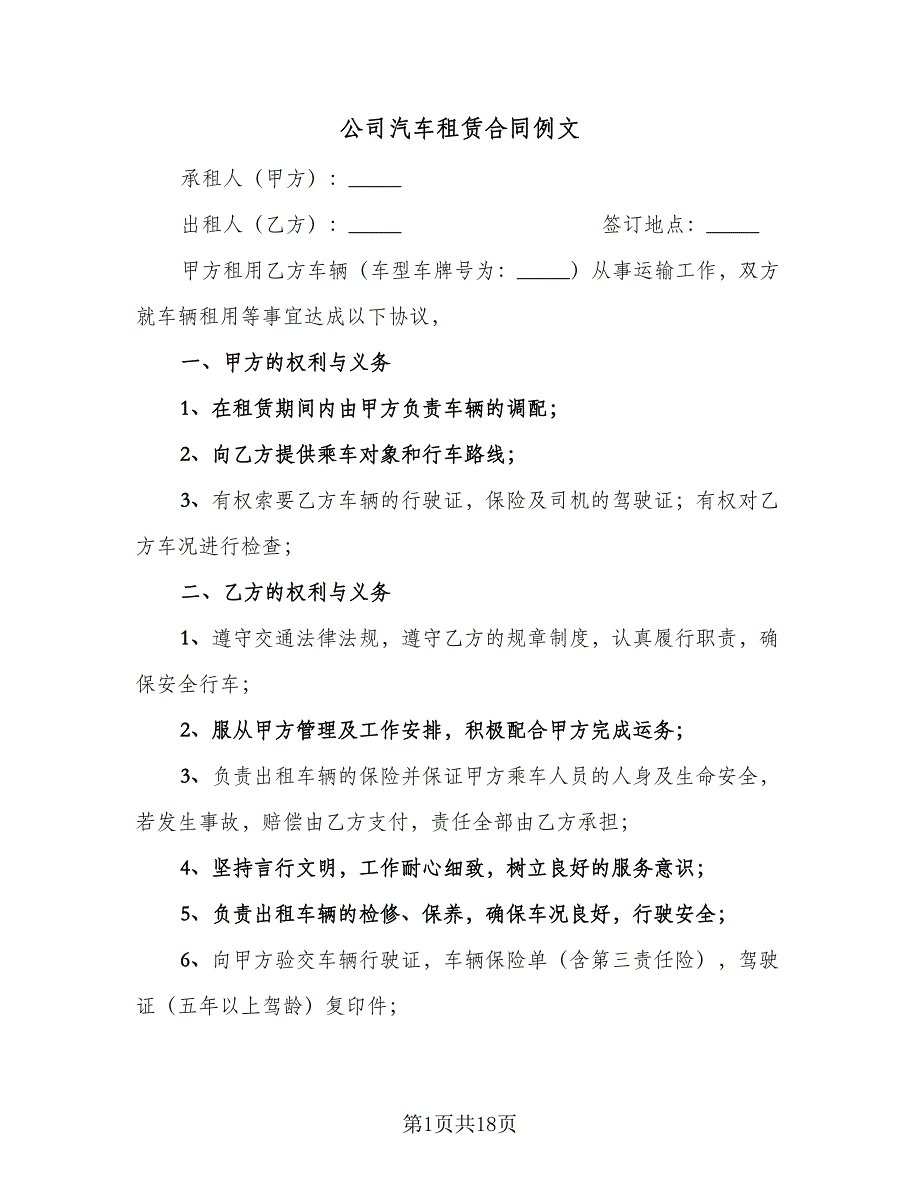 公司汽车租赁合同例文
承租人（甲方）：_____
出租人（乙方）：_____ 签订地点：_____
甲方租用乙方车辆（车型车牌号为：_____）从事运输工作，双方
就车辆租用等事宜达成以下协议，
一、甲方的权利与义务
1、在租赁期间内由甲方负责车辆的调配；
2、向乙方提供乘车对象和行车路线；
3、有权索要乙方车辆的行驶证，保险及司机的驾驶证；有权对乙
方车况进行检查；
二、乙方的权利与义务
1、遵守交通法律法规，遵守乙方的规章制度，认真履行职责，确
保安全行车；
2、服从甲方管理及工作安排，积极配合甲方完成运务；
3、负责出租车辆的保险并保证甲方乘车人员的人身及生命安全，
若发生事故，赔偿由乙方支付，责任全部由乙方承担；
4、坚持言行文明，工作耐心细致，树立良好的服务意识；
5、负责出租车辆的检修、保养，确保车况良好，行驶安全；
6、向甲方验交车辆行驶证，车辆保险单（含第三责任险），驾驶
证（五年以上驾龄）复印件；
第1页共18页